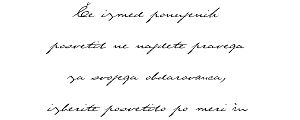 Če izmed ponujenih
posvetil ne najdete pravega
za svojega obdarovanca,
izberite posvetilo po meri in